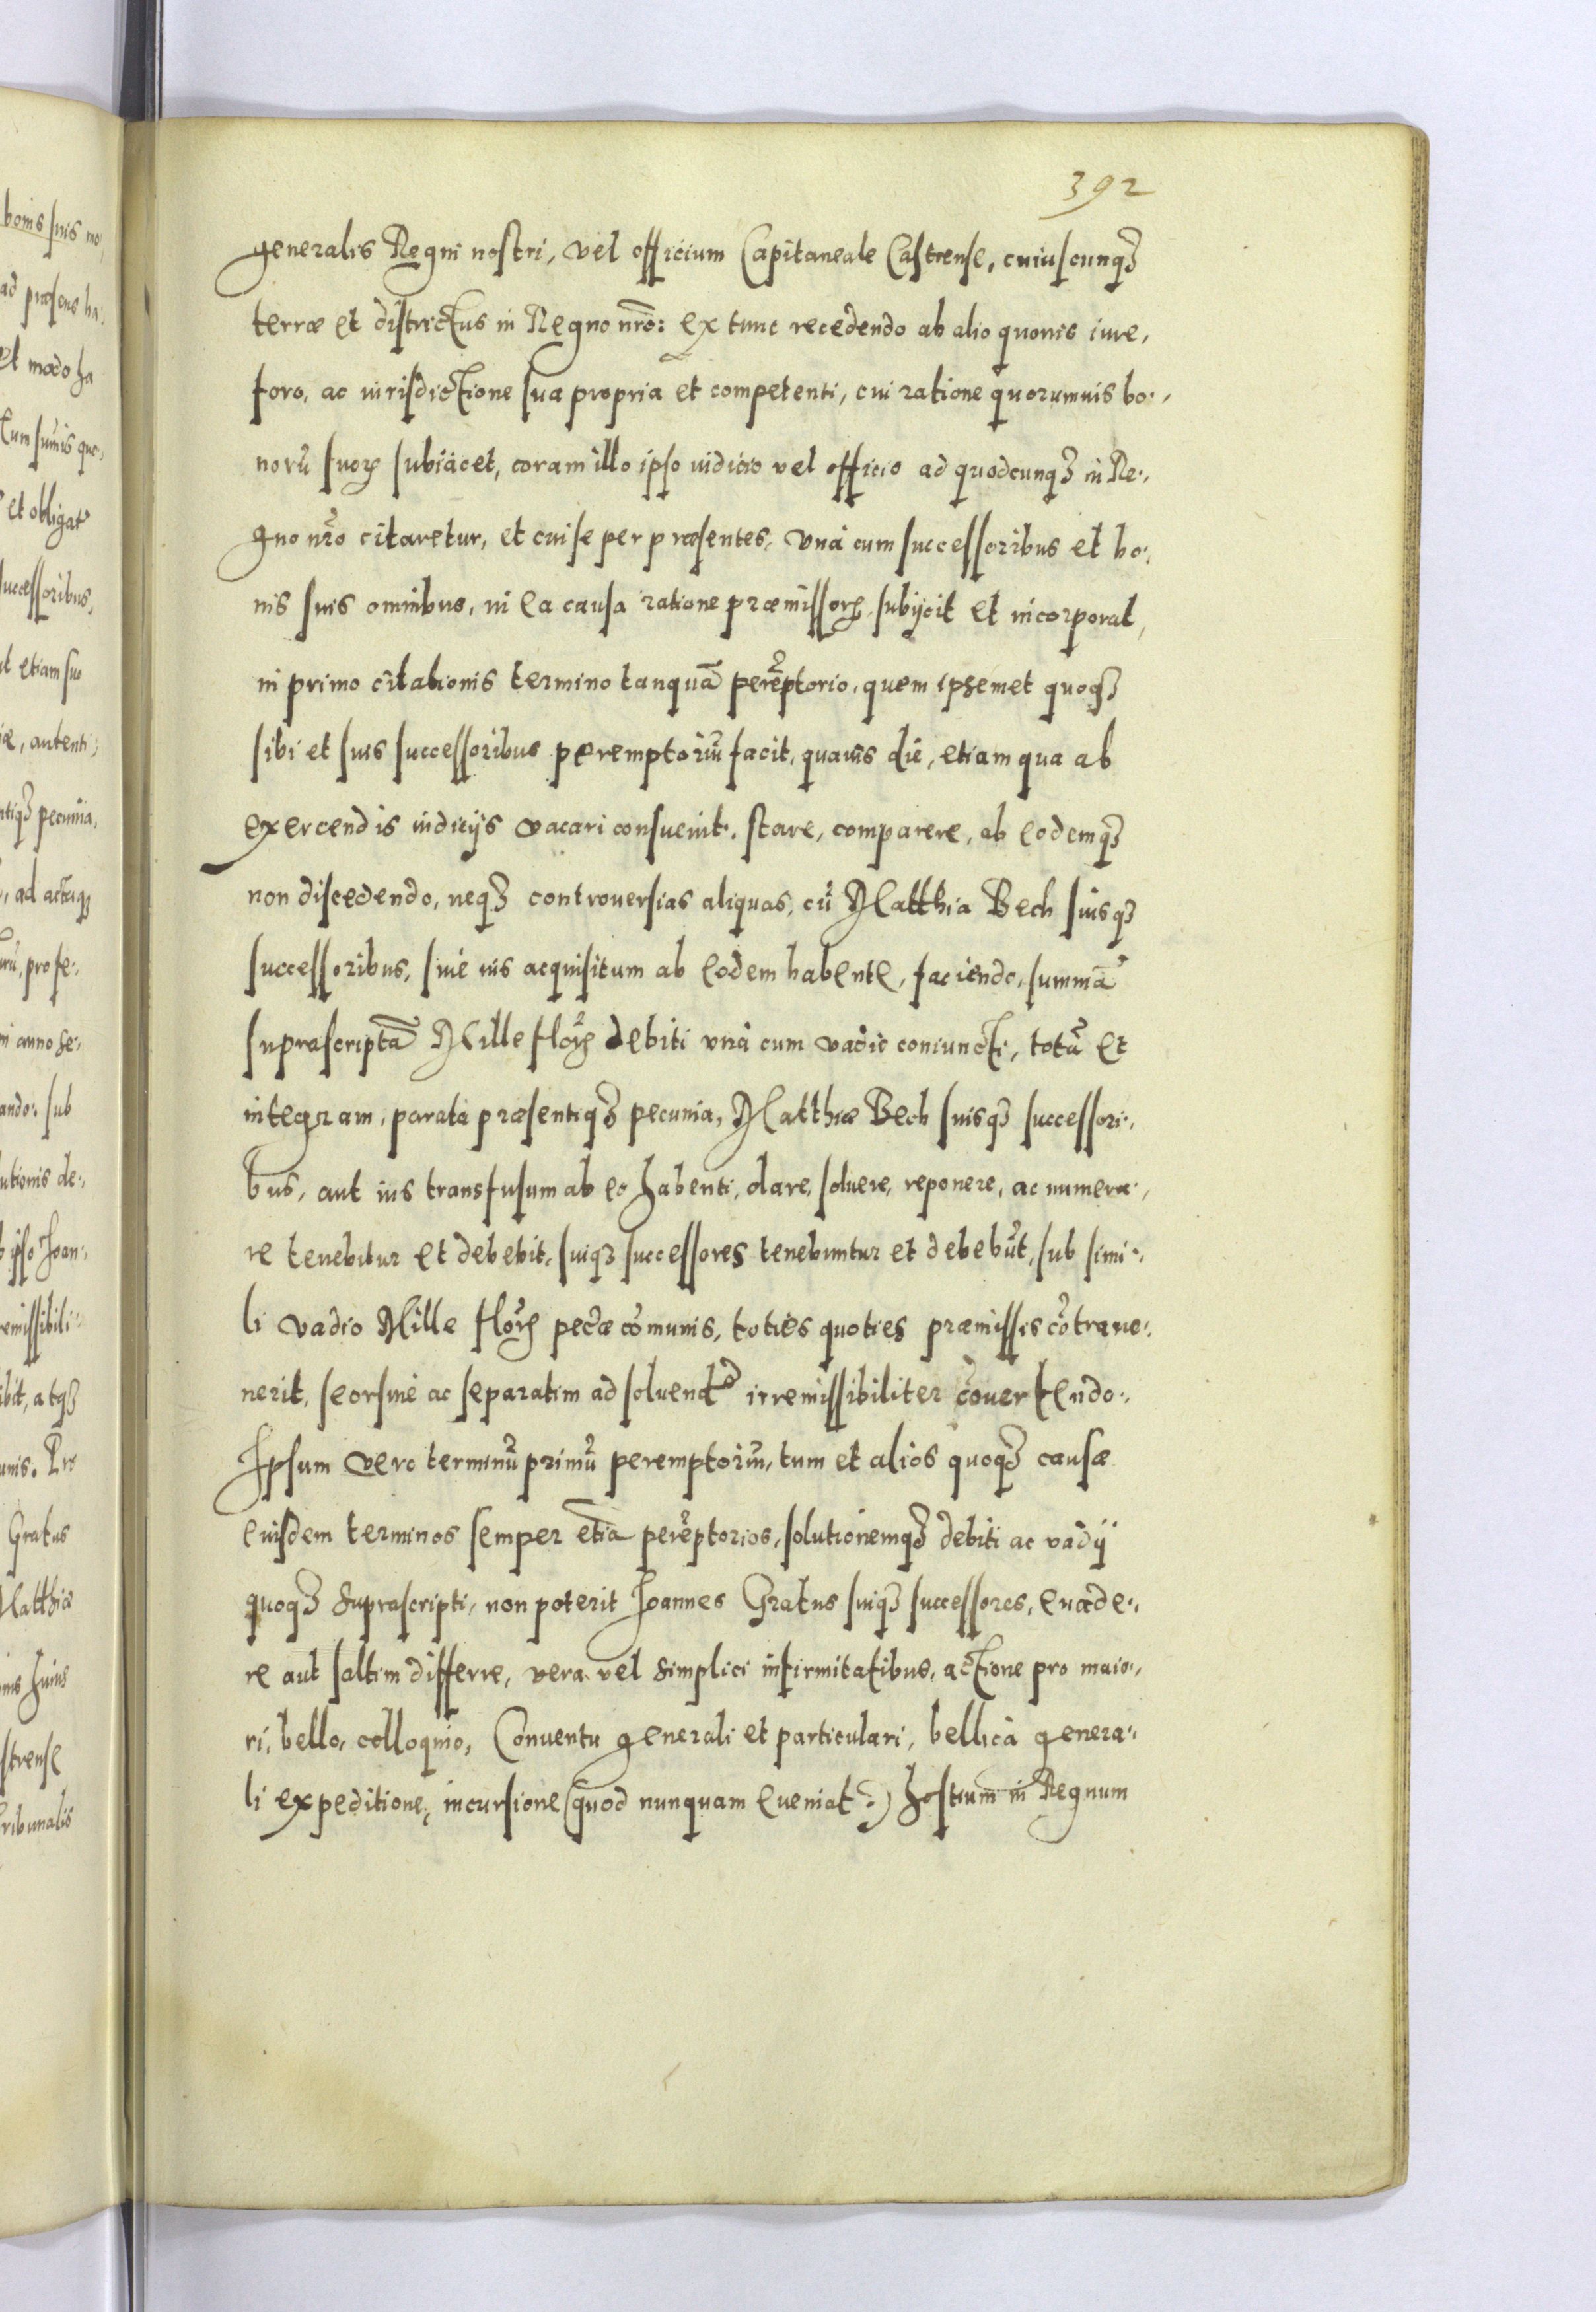 392
generalis Regni nostri, vel officium Capitaneale Castrense, cuiuscunq₃
terræ et districtus in Regno nr̃o: ex tunc recedendo ab alio quouis iure,
foro, ac iurisdictione sua propria et competenti, cui ratione quorumuis bo:,
norũ suorꝝ subiacet, coram illo ipso iudicio vel officio ad quodcunq₃ in Re:,
gno nr̃o citaretur, et cui se per præsentes, vnà cum successoribus et bo:,
nis suis omnibus, in ea causa ratione præmissorꝝ subijcit et incorporat,
in primo citationis termino tanquã perẽptorio, quem ipsemet quoq₃
sibi et suis successoribus peremptoriũ facit, quauis die, etiam qua ab
exercendis iudicijs vacari consueuit, stare, comparere, ab eodemq₃
non discedendo, neq₃ controuersias aliquas, cũ Matthia Bech suisq₃
successoribus, siue ius acquisitum ab eodem habente, faciendo, summã
suprascriptã Mille florꝝ debiti vnà cum vadio coniuncti, totã et
integram, parata præsentiq₃ pecunia, Matthiæ Bech suisq₃ successori:,
bus, aut ius transfusum ab eo habenti, dare, soluere, reponere, ac numera:,
re tenebitur et debebit, suiq₃ successores tenebuntur et debebũt, sub simi:,
li vadio Mille florꝝ pecũæ cõmunis, toties quoties præmissis cõtraue:,
nerit, seorsiuè ac separatim ad soluendũ irremissibiliter cõuertendo:,
Ipsum vero terminũ primũ peremptoriũ, tum et alios quoq₃ causæ
eiusdem terminos semper etiã perẽptorios, solutionemq₃ debiti ac vadij
quoq₃ suprascripti, non poterit Joannes Gratus suiq₃ successores, euade:,
re aut saltim differre, vera vel simplici infirmitatibus, actione pro maio:,
ri, bello, colloquio, Conuentu generali et particulari, bellicà genera:,
li expeditione, incursione (quod nunquam eueniat:) hostium in Regnum